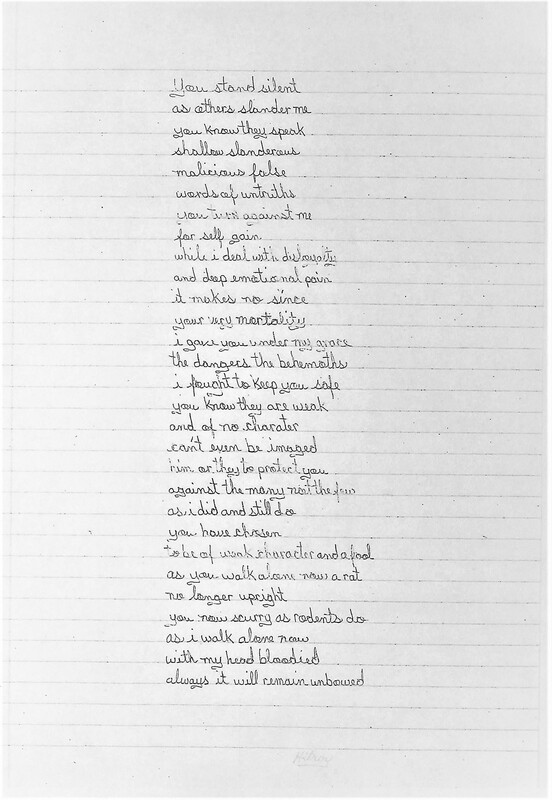 You stand silent
as others slander me
you know they speak
shallow slanderous
malicious false
words of untruths
you turn against me
for self gain
while i deal with disloyalty
and deep emotional pain
it makes no since
your very mortality
i gave you under my grace
the dangers the behemoths
i fought to keep you safe
you know they are weak
and of no charater
can't even be imaged
him or they to protect you
against the many not the few
as i did and still do
you have chosen
to be of weak character and a fool
as you walk alone now a rat
no longer upright
you now scurry as rodents do
as i walk alone now
with my head bloodied
always it will remain unbowed